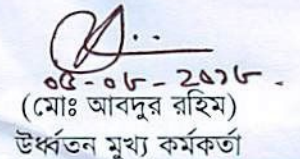 ০৫-০৮-২০১৮
(মোঃ আবদুর রহিম)
উর্ধ্বতন মুখ্য কর্মকর্তা